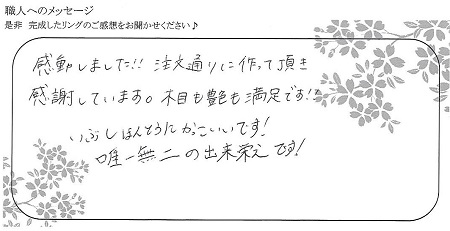 職人へのメッセージ
是非 完成したリングのご感想をお聞かせください♪
感動しました!! 注文通りに作って頂き
感謝しています。木目も艶も満足です!!
いぶしほんとうにかっこいいです!
唯一無二の出来栄えです!